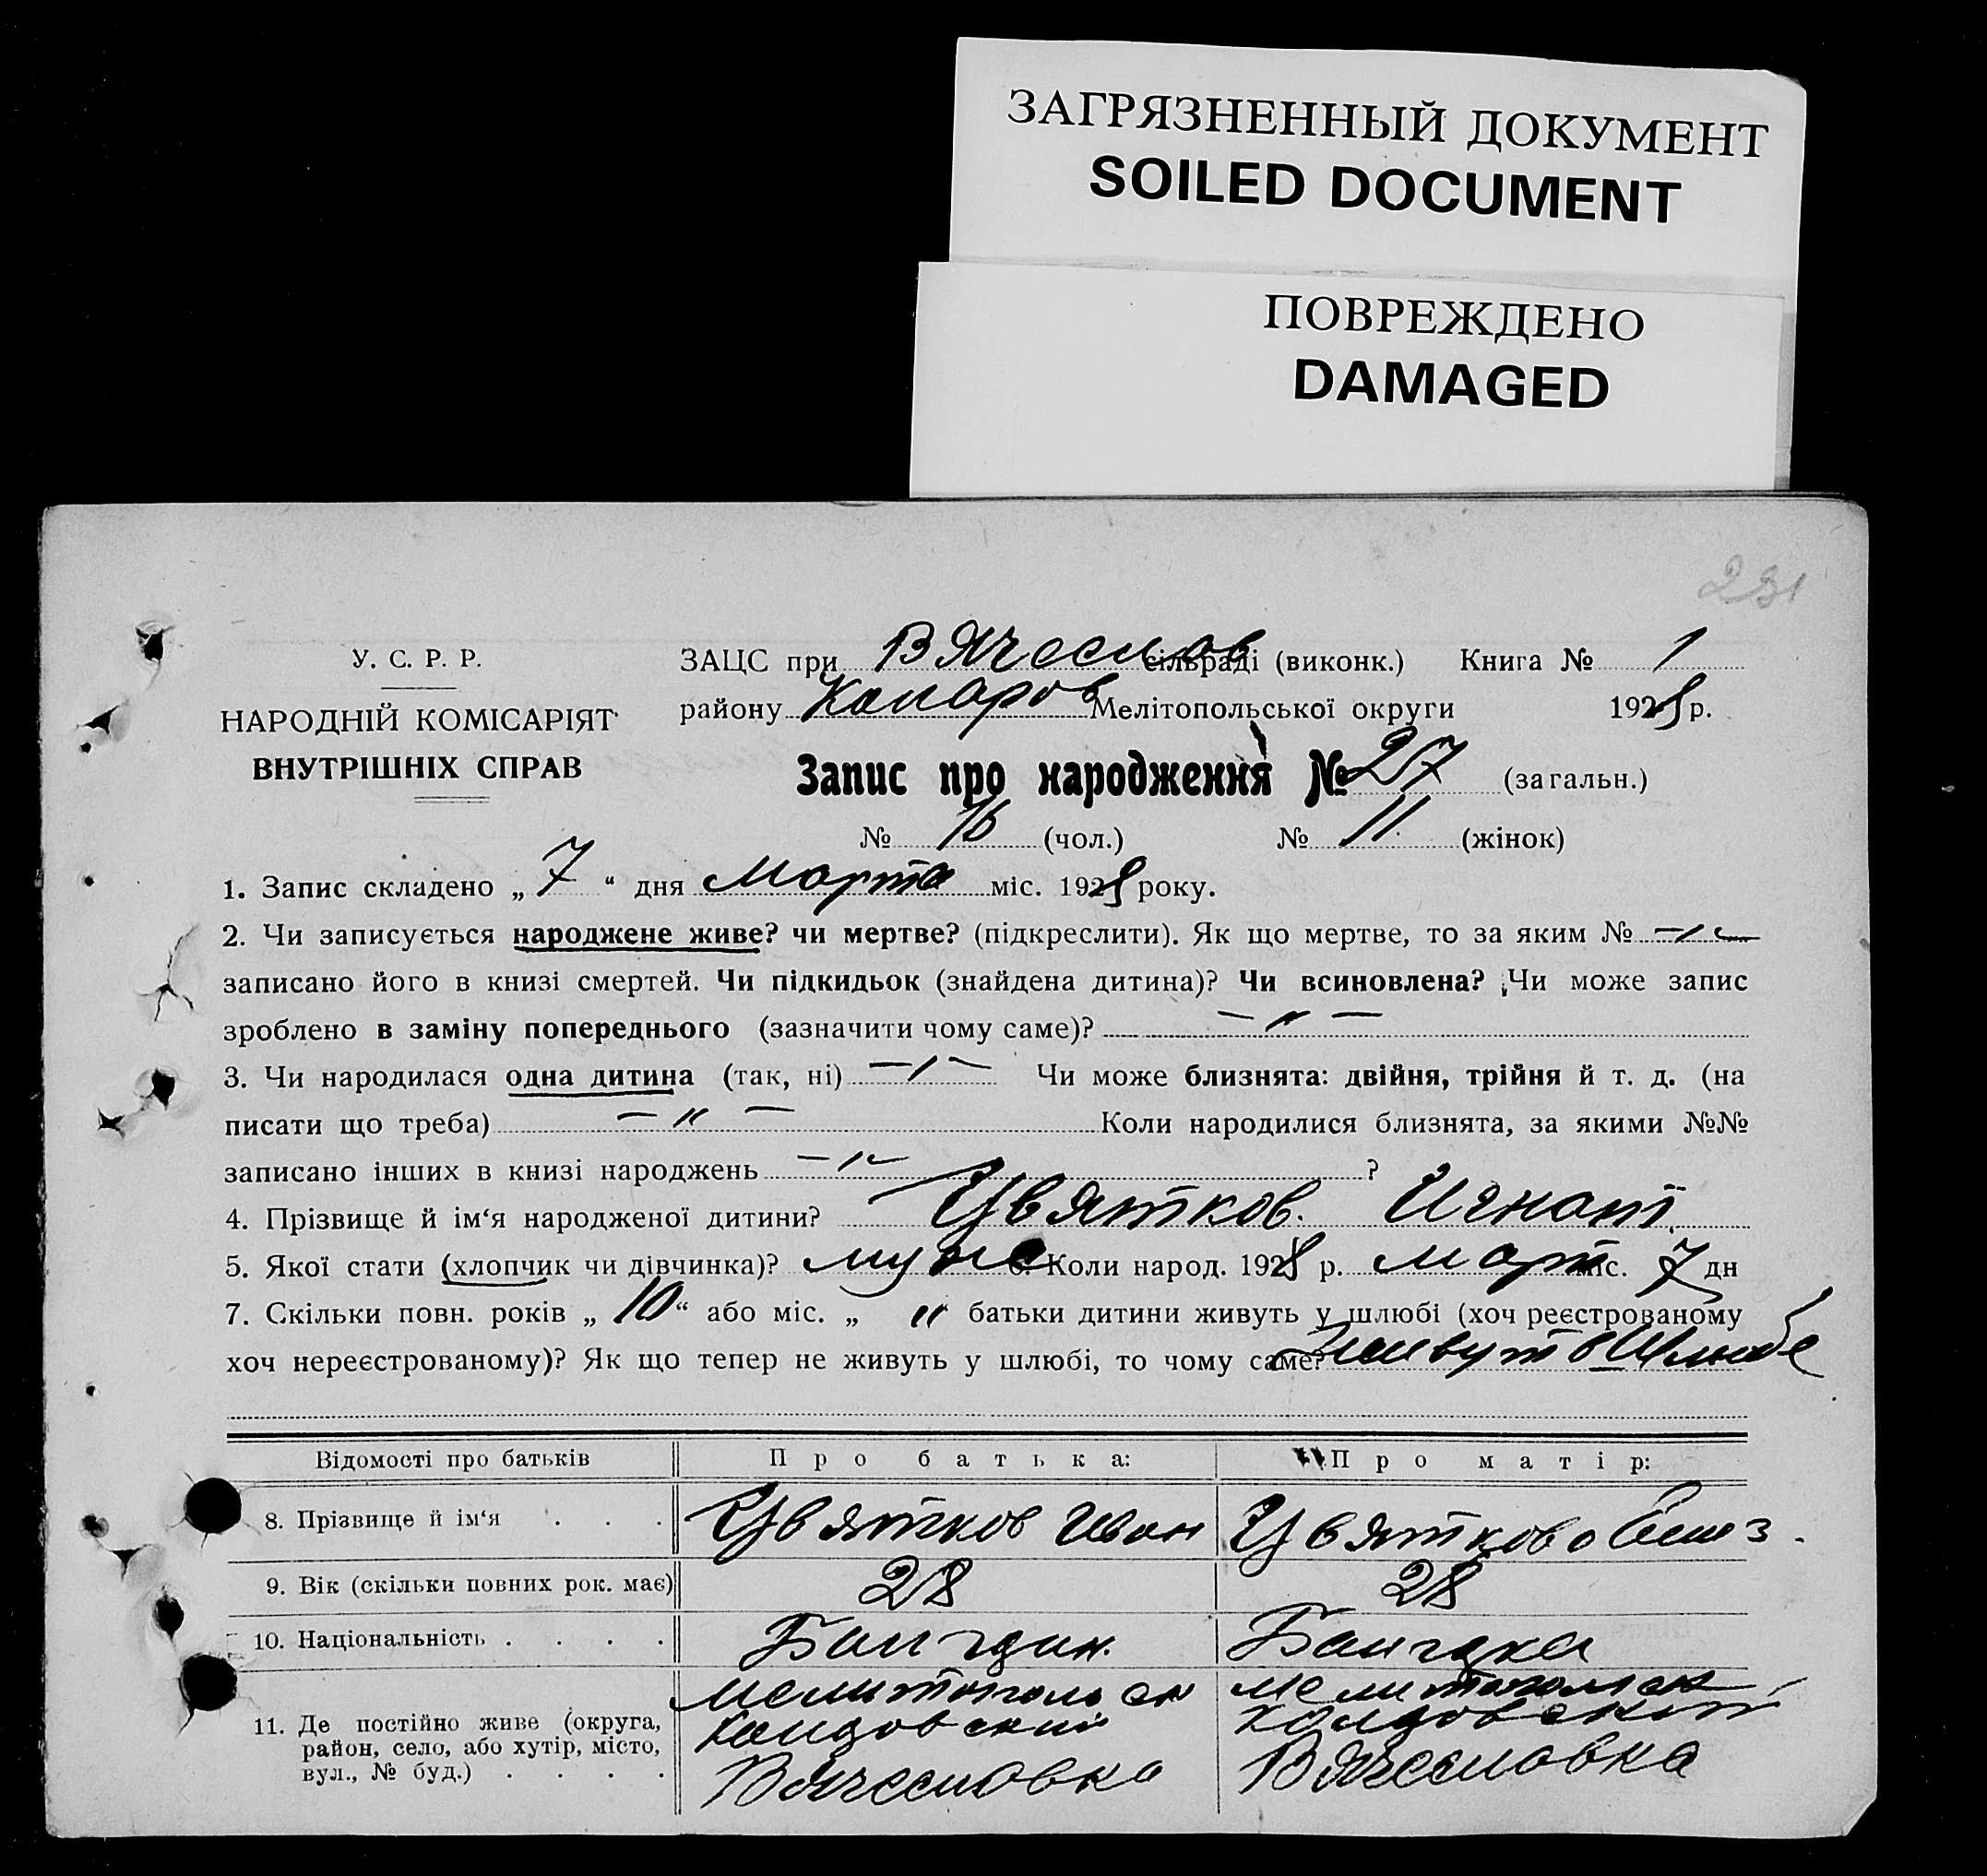 ЗАГРЯЗНЕННЫЙ ДОКУМЕНТ
SOILED DOCUMENT
ПОВРЕЖДЕНО
DAMAGED
231
У. С. Р. Р.
НАРОДНІЙ КОМІСАРІЯТ
ВНУТРІШНІХ СПРАВ
ЗАЦС при Вячеслов сільраді (виконк.) Книга № 1
району Мелітопольської округи 1928 р.
Запис про народження № 27 (загальн.)
№ 16 (чол.) № 11 (жінок)
1. Запис складено „ 7 “ дня Марта міс. 1928 року.
2. Чи записується народжене живе? чи мертве? (підкреслити). Як що мертве, то за яким № —"—
записано його в книзі смертей. Чи підкидьок (знайдена дитина)? Чи всиновлена? Чи може запис
зроблено в заміну попереднього (зазначити чому саме)? — " —
3. Чи народилася одна дитина (так, ні) —"— Чи може близнята: двійня, трійня й т. д. (на
писати що треба) — " — Коли народилися близнята, за якими №№
записано інших в книзі народжень —"— ?
4. Прізвище й ім‘я народженої дитини? Цвятков. Игнат.
5. Якої стати (хлопчик чи дівчинка)? муж 6. Коли народ. 1928 р. март міс. 7 дн
7. Скільки повн. років „ 10 “ або міс. „ " батьки дитини живуть у шлюбі (хоч реєстрованому
хоч нереєстрованому)? Як що тепер не живуть у шлюбі, то чому саме? живут в Шлюбе
Відомості про батьків Про батька: Про матір:
8. Прізвище й ім‘я . . . Цвятков Иван Цвяткова
9. Вік (скільки повних рок. має) 28 28
10. Національність . . . . Болгарин. Болгарка
11. Де постійно живе (округа, Мелитопольск Мелитопольск
район, село, або хутір, місто,
вул., № буд.) . . . . Вячесловка Вячесловка